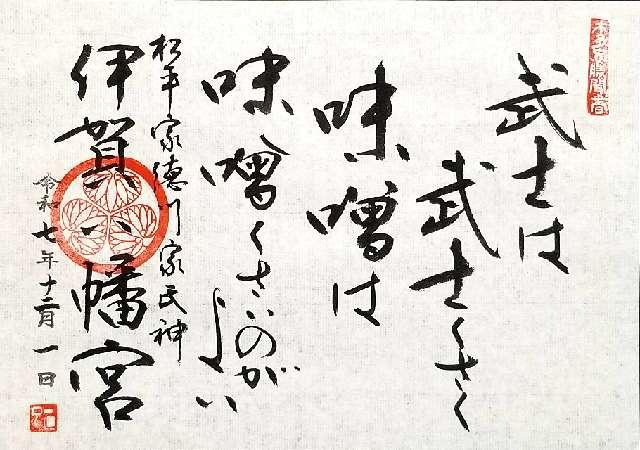 武士は
武士くさく
味噌は
味噌くさいのが
よい
松平家徳川家氏神
伊賀八幡宮
令和七年十二月一日